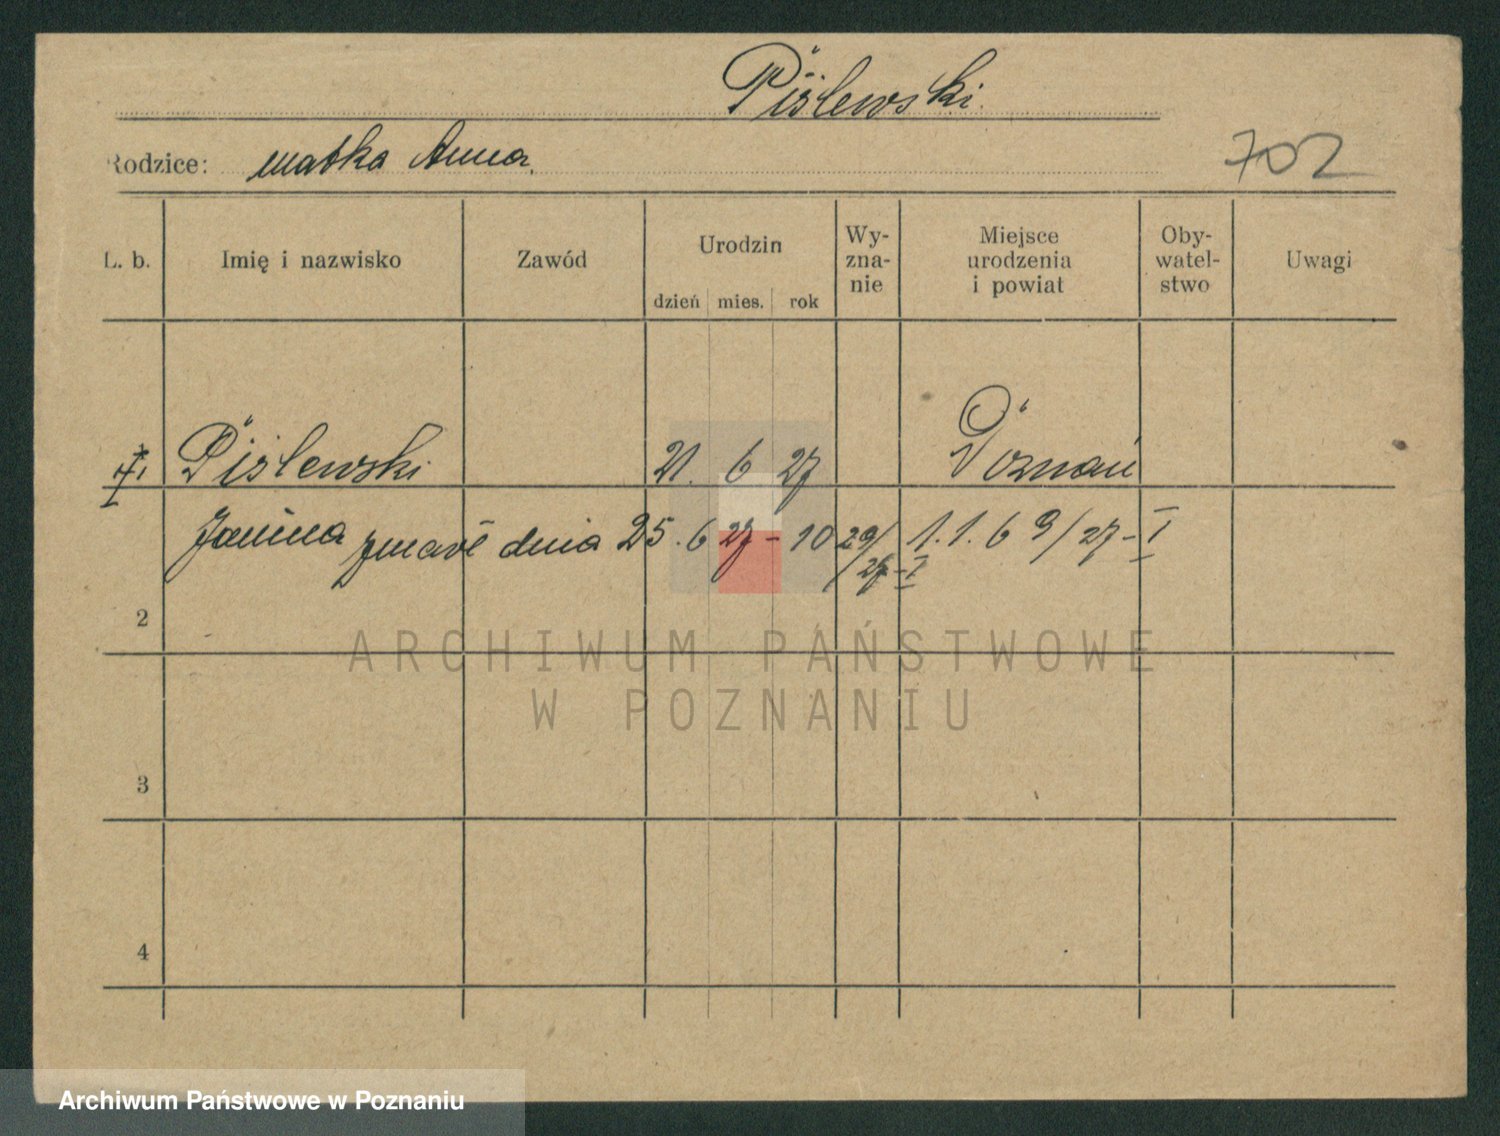 Piślewski
Rodzice: matka Anna.
702
L. b. Imię i nazwisko Zawód Urodzin dzień mies. rok Wy-zna-nie Miejsce urodzenia i powiat Oby-watel-stwo Uwagi
Piślewski 21. 6 27 Poznań
Janina zmarł dnia 25. 6 27 - 1029/27-I 1.1.69/27-I
2
3
4
ARCHIWUM PAŃSTWOWE
W POZNANIU
Archiwum Państwowe w Poznaniu